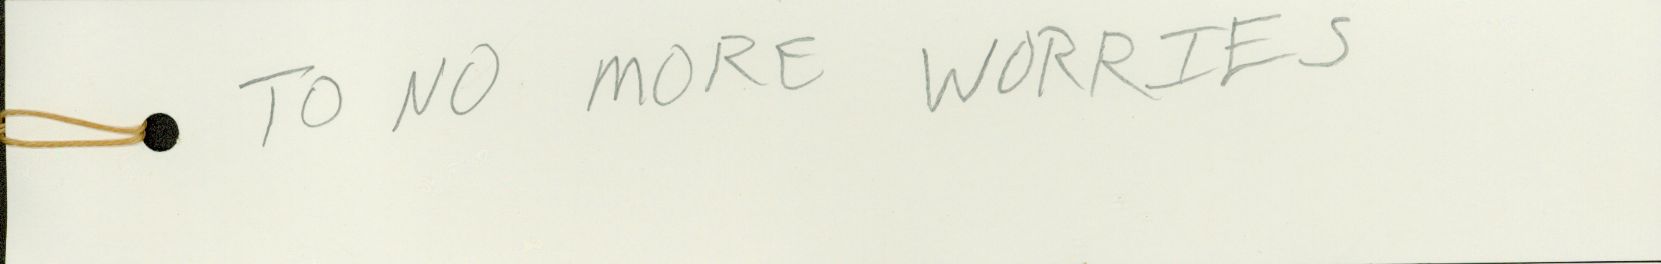 TO NO MORE WORRIES